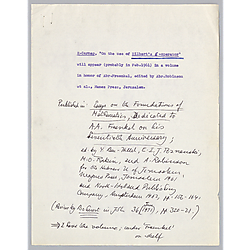 R.Carnap, "On the use of Hilbert's ε-operator"
will appear (probably in Feb.1961) in a volume
in honor of Abr.Fraenkel, edited by Abr.Robinson
et al., Magnes Press, Jerusalem.
Published in: Essays on the Foundations of
Mathematics, Dedicated to
A.A. Fraenkel on his
Seventieth Anniversary;
ed. by Y. Bar-Hillel, E.I.J. Poznanski,
M.O. Rabin, and A. Robinson
for the Hebrew U. of Jerusalem;
Magnes Press, Jerusalem 1961
and North-Holland Publishing
Company, Amsterdam 1961, pp.
(Review by in 36 (1971), pp. 320-21.)
I have the volume; under 'Fraenkel'
on shelf